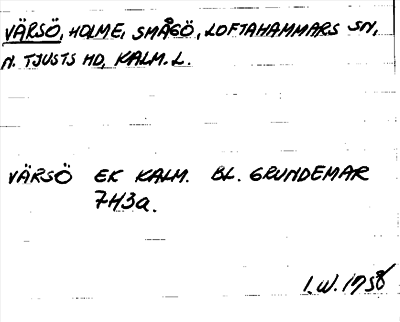 VÄRSÖ, HOLME, SMÅGÖ, LOFTAHAMMARS SN,
N. TJUSTS HD, KALM. L.
VÄRSÖ EK KALM. BL. GRUNDEMAR
7H3a.
I.W. 1958